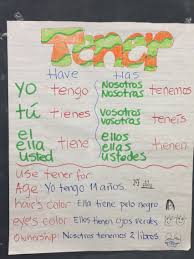 Tener
Have Has
yo tengo Nosotros Nosotras tenemos
tú tienes Vosotros Vosotras teneís
el ella usted tiene ellos ellas ustedes tienen
use tener for:
Age: Yo tengo 11 años.
Hair's color: Ella tiene pelo negro.
eye's color: Ellos tienen ojos verdes.
ownership: Nosotros tenemos 2 libros.